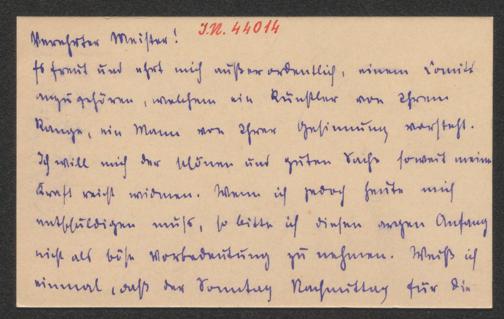 J.N. 44014
Verehrter Meister!
Es freut und ehrt mich außerordentlich, einem Comité
anzugehören, welchem ein Künstler von Ihrem
Range, ein Mann von Ihrer Gesinnung vorsteht.
Ich will mich der schönen und guten Sache soweit meine
Kraft reicht widmen. Wenn ich jedoch heute mich
entschuldigen muß, so bitte ich diesen argen Anfang
nicht als böse Vorbedeutung zu nehmen. Weiß ich
einmal, daß der Sonntag Nachmittag für die